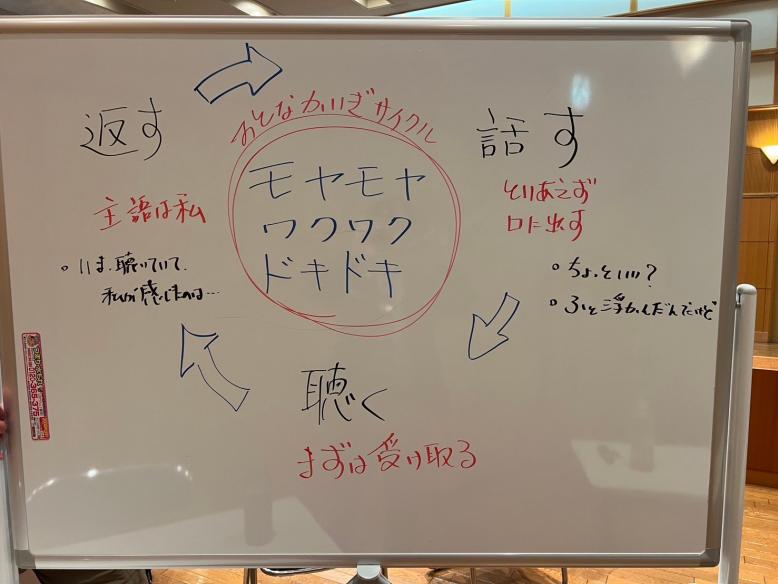 おとなかいぎサイクル
モヤモヤ
ワクワク
ドキドキ
話す
とりあえず
口に出す
ちょっといい?
ふと浮かんだんだけど
聴く
まずは受け取る
返す
主語は私
いま、聴いていて、
私が感じたのは…